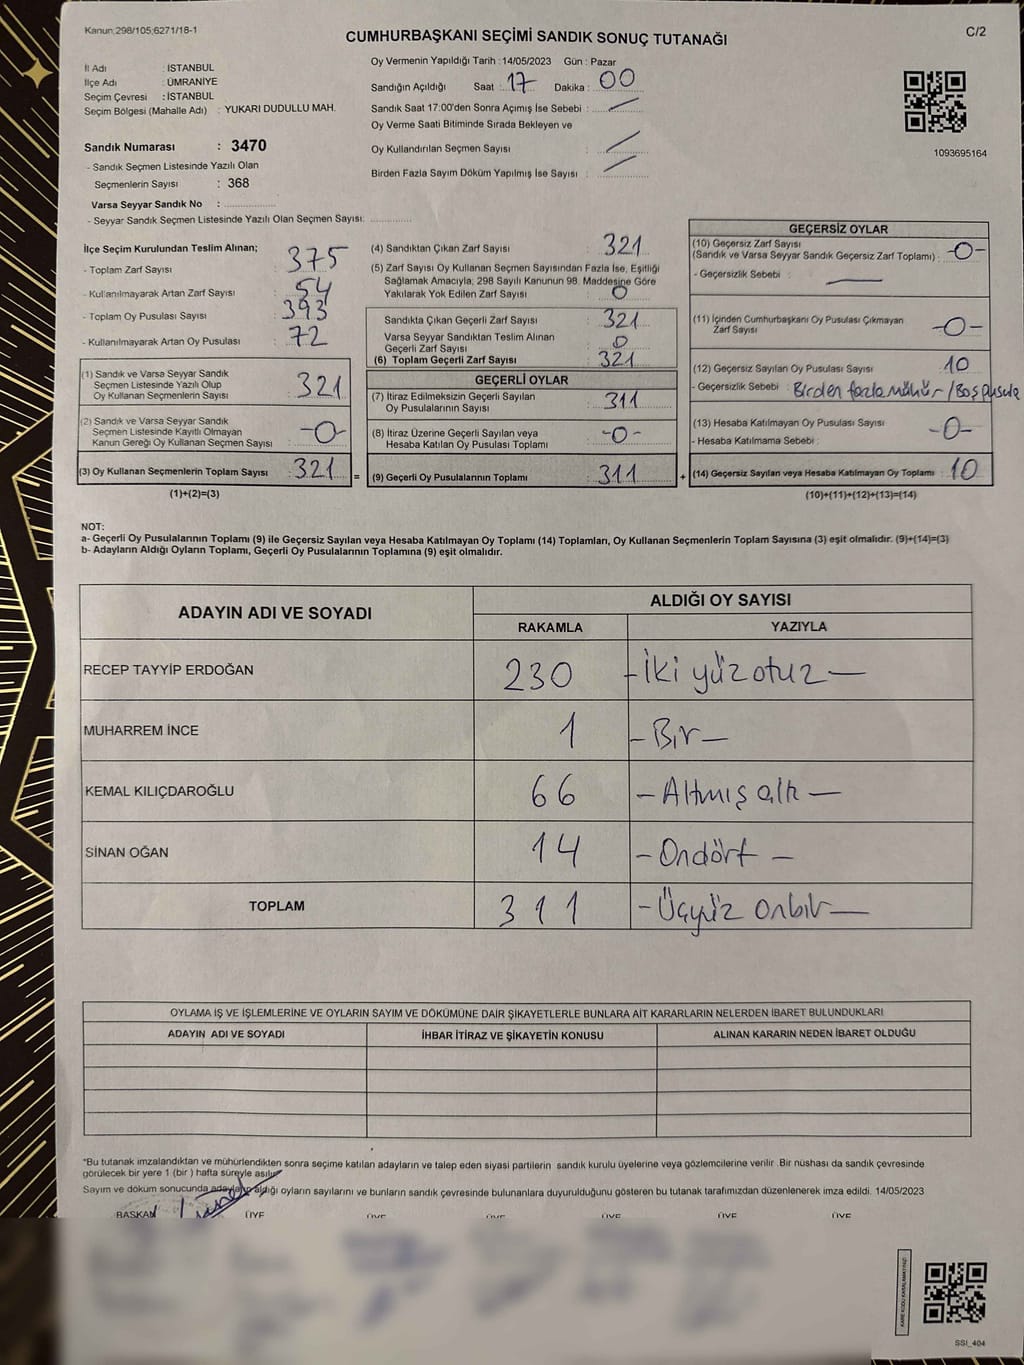 Kanun;298/105;6271/18-1
CUMHURBAŞKANI SEÇİMİ SANDIK SONUÇ TUTANAĞI
C/2
İl Adı : İSTANBUL
İlçe Adı : ÜMRANİYE
Seçim Çevresi : İSTANBUL
Seçim Bölgesi (Mahalle Adı) : YUKARI DUDULLU MAH.
Sandık Numarası : 3470
- Sandık Seçmen Listesinde Yazılı Olan
Seçmenlerin Sayısı : 368
Varsa Seyyar Sandık No :
- Seyyar Sandık Seçmen Listesinde Yazılı Olan Seçmen Sayısı:
Oy Vermenin Yapıldığı Tarih : 14/05/2023 Gün : Pazar
Sandığın Açıldığı Saat : 17 Dakika : 00
Sandık Saat 17:00'den Sonra Açımış İse Sebebi : —
Oy Verme Saati Bitiminde Sırada Bekleyen ve
Oy Kullandırılan Seçmen Sayısı : —
Birden Fazla Sayım Döküm Yapılmış İse Sayısı : —
1093695164
İlçe Seçim Kurulundan Teslim Alınan;
- Toplam Zarf Sayısı : 375
- Kullanılmayarak Artan Zarf Sayısı : 54
- Toplam Oy Pusulası Sayısı : 393
- Kullanılmayarak Artan Oy Pusulası : 72
(1) Sandık ve Varsa Seyyar Sandık
Seçmen Listesinde Yazılı Olup
Oy Kullanan Seçmenlerin Sayısı : 321
(2) Sandık ve Varsa Seyyar Sandık
Seçmen Listesinde Kayıtlı Olmayan
Kanun Gereği Oy Kullanan Seçmen Sayısı : -0-
(3) Oy Kullanan Seçmenlerin Toplam Sayısı : 321 =
(1)+(2)=(3)
(4) Sandıktan Çıkan Zarf Sayısı : 321
(5) Zarf Sayısı Oy Kullanan Seçmen Sayısından Fazla İse, Eşitliği
Sağlamak Amacıyla; 298 Sayılı Kanunun 98. Maddesine Göre
Yakılarak Yok Edilen Zarf Sayısı : 0
Sandıkta Çıkan Geçerli Zarf Sayısı : 321
Varsa Seyyar Sandıktan Teslim Alınan
Geçerli Zarf Sayısı : 0
(6) Toplam Geçerli Zarf Sayısı : 321
GEÇERLİ OYLAR
(7) İtiraz Edilmeksizin Geçerli Sayılan
Oy Pusulalarının Sayısı : 311
(8) İtiraz Üzerine Geçerli Sayılan veya
Hesaba Katılan Oy Pusulası Toplamı : -0-
(9) Geçerli Oy Pusulalarının Toplamı : 311 +
GEÇERSİZ OYLAR
(10) Geçersiz Zarf Sayısı
(Sandık ve Varsa Seyyar Sandık Geçersiz Zarf Toplamı) : -0-
- Geçersizlik Sebebi : —
(11) İçinden Cumhurbaşkanı Oy Pusulası Çıkmayan
Zarf Sayısı : -0-
(12) Geçersiz Sayılan Oy Pusulası Sayısı : 10
- Geçersizlik Sebebi : Birden fazla mühür / Boş pusula
(13) Hesaba Katılmayan Oy Pusulası Sayısı : -0-
- Hesaba Katılmama Sebebi :
(14) Geçersiz Sayılan veya Hesaba Katılmayan Oy Toplamı : 10
(10)+(11)+(12)+(13)=(14)
NOT:
a- Geçerli Oy Pusulalarının Toplamı (9) ile Geçersiz Sayılan veya Hesaba Katılmayan Oy Toplamı (14) Toplamları, Oy Kullanan Seçmenlerin Toplam Sayısına (3) eşit olmalıdır. (9)+(14)=(3)
b- Adayların Aldığı Oyların Toplamı, Geçerli Oy Pusulalarının Toplamına (9) eşit olmalıdır.
ADAYIN ADI VE SOYADI ALDIĞI OY SAYISI
RAKAMLA YAZIYLA
RECEP TAYYİP ERDOĞAN 230 -İki yüz otuz-
MUHARREM İNCE 1 -Bir-
KEMAL KILIÇDAROĞLU 66 -Altmış altı-
SİNAN OĞAN 14 -Ondört-
TOPLAM 311 -Üçyüz onbir-
OYLAMA İŞ VE İŞLEMLERİNE VE OYLARIN SAYIM VE DÖKÜMÜNE DAİR ŞİKAYETLERLE BUNLARA AİT KARARLARIN NELERDEN İBARET BULUNDUKLARI
ADAYIN ADI VE SOYADI İHBAR İTİRAZ VE ŞİKAYETİN KONUSU ALINAN KARARIN NEDEN İBARET OLDUĞU
*Bu tutanak imzalandıktan ve mühürlendikten sonra seçime katılan adayların ve talep eden siyasi partilerin sandık kurulu üyelerine veya gözlemcilerine verilir .Bir nüshası da sandık çevresinde
görülecek bir yere 1 (bir ) hafta süreyle asılır.
Sayım ve döküm sonucunda adayların aldığı oyların sayılarını ve bunların sandık çevresinde bulunanlara duyurulduğunu gösteren bu tutanak tarafımızdan düzenlenerek imza edildi. 14/05/2023
BAŞKAN ÜYE ÜYE ÜYE ÜYE ÜYE ÜYE
SSI_404